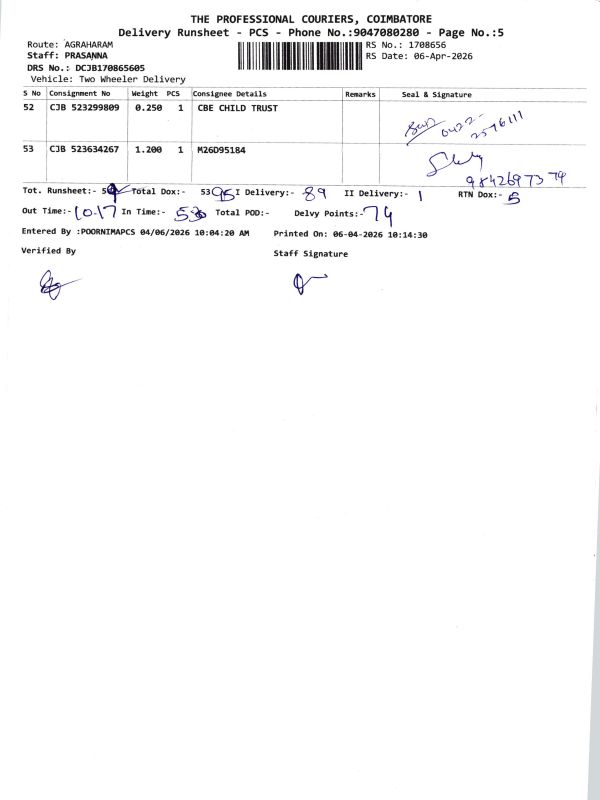 THE PROFESSIONAL COURIERS, COIMBATORE
Delivery Runsheet - PCS - Phone No.:9047080280 - Page No.:5
Route: AGRAHARAM RS No.: 1708656
Staff: PRASANNA RS Date: 06-Apr-2026
DRS No.: DCJB170865605
Vehicle: Two Wheeler Delivery
S No Consignment No Weight PCS Consignee Details Remarks Seal & Signature
52 CJB 523299809 0.250 1 CBE CHILD TRUST
0422-
2576111
53 CJB 523634267 1.200 1 M26D95184
9842697379
Tot. Runsheet:- Total Dox:- 53 95 I Delivery:- 89 II Delivery:- 1 RTN Dox:- 5
Out Time:- 10.17 In Time:- Total POD:- Delvy Points:- 74
Entered By :POORNIMAPCS 04/06/2026 10:04:20 AM Printed On: 06-04-2026 10:14:30
Verified By Staff Signature